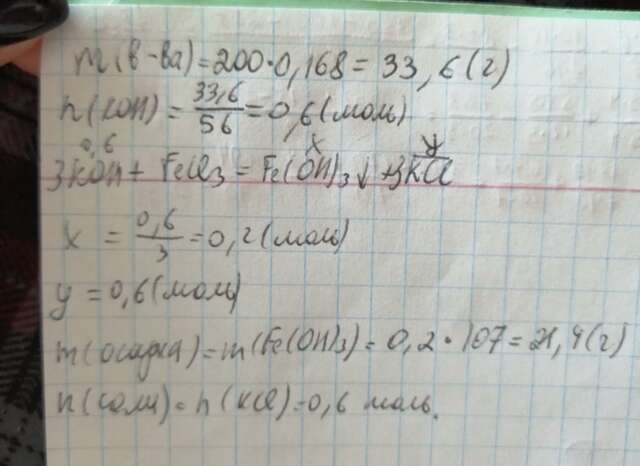 m(в-ва)=200·0,168=33,6(г)
n(KOH)=33,6/56=0,6(моль)
0,6 x y
3KOH+FeCl3=Fe(OH)3↓+3KCl
x=0,6/3=0,2(моль)
y=0,6(моль)
m(осадка)=m(Fe(OH)3)=0,2·107=21,4(г)
n(соли)=n(KCl)=0,6 моль.